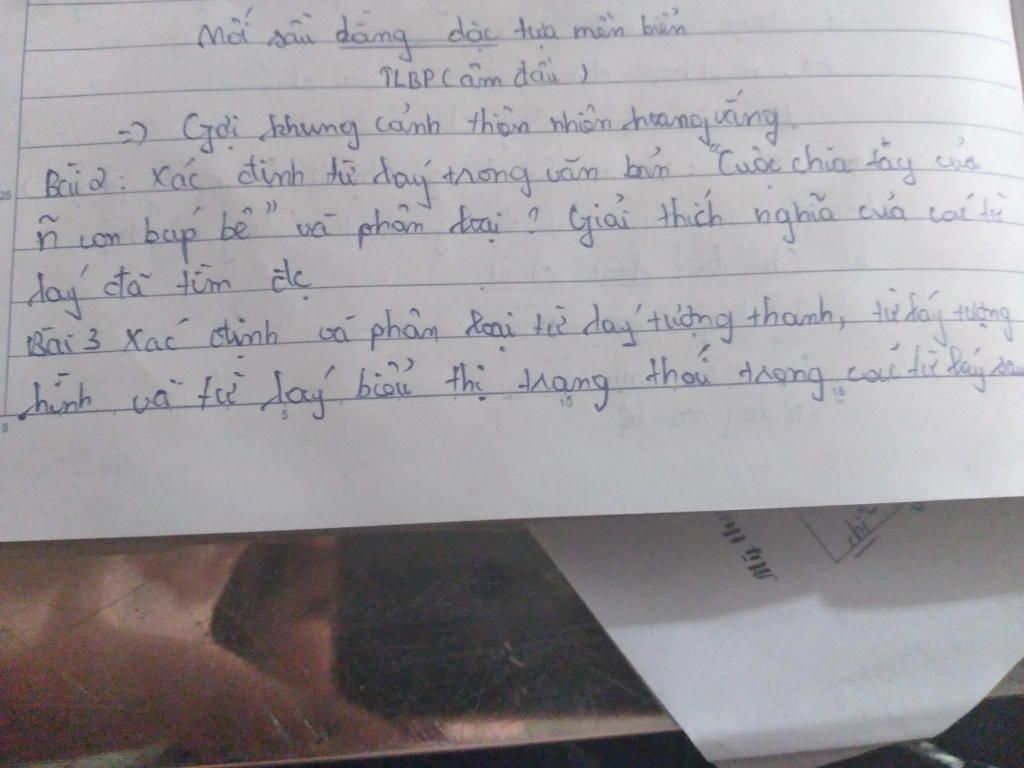 Mối sầu dằng dặc tựa miền biển
TLBP (âm đầu)
=> Gợi khung cảnh thiên nhiên hoang vắng.
Bài 2: Xác định từ láy trong văn bản "Cuộc chia tay của
ñ con búp bê" và phân loại? Giải thích nghĩa của các từ
láy đã tìm đc
Bài 3 Xác định và phân loại từ láy tượng thanh, từ láy tượng
hình và từ láy biểu thị trạng thái trong các từ láy sau
5 10 15
25
Mỹ Thu